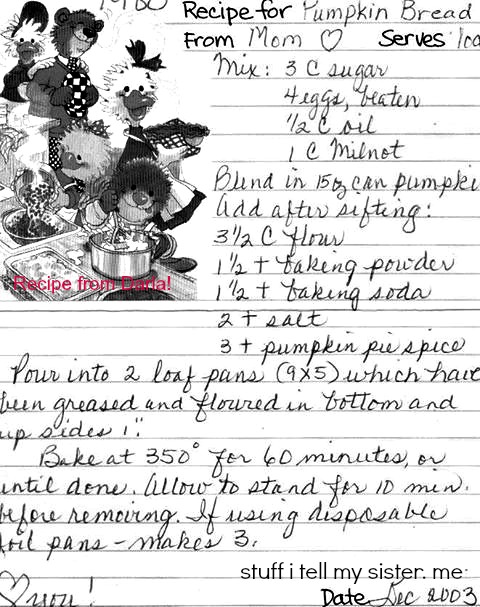 Recipe for Pumpkin Bread
From Mom ♡ Serves
Mix: 3 C sugar
4 eggs, beaten
1/2 C oil
1 C Milnot
Blend in 15 oz can pumpki
Add after sifting:
3 1/2 C flour
1 1/2 t baking powder
1 1/2 t baking soda
Recipe from Darla!
2 t salt
3 t pumpkin pie spice
Pour into 2 loaf pans (9x5) which have
been greased and floured in bottom and
up sides 1".
Bake at 350° for 60 minutes, or
until done. Allow to stand for 10 min.
before removing. If using disposable
foil pans - makes 3.
stuff i tell my sister. me
♡ you!
Date Dec 2003